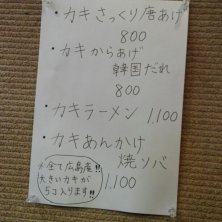 ・カキさっくり唐あげ
800
・カキからあげ
韓国だれ
800
・カキラーメン 1,100
・カキあんかけ
焼ソバ
1,100
※全て広島産!!
大きいカキが
5コ入ります!!